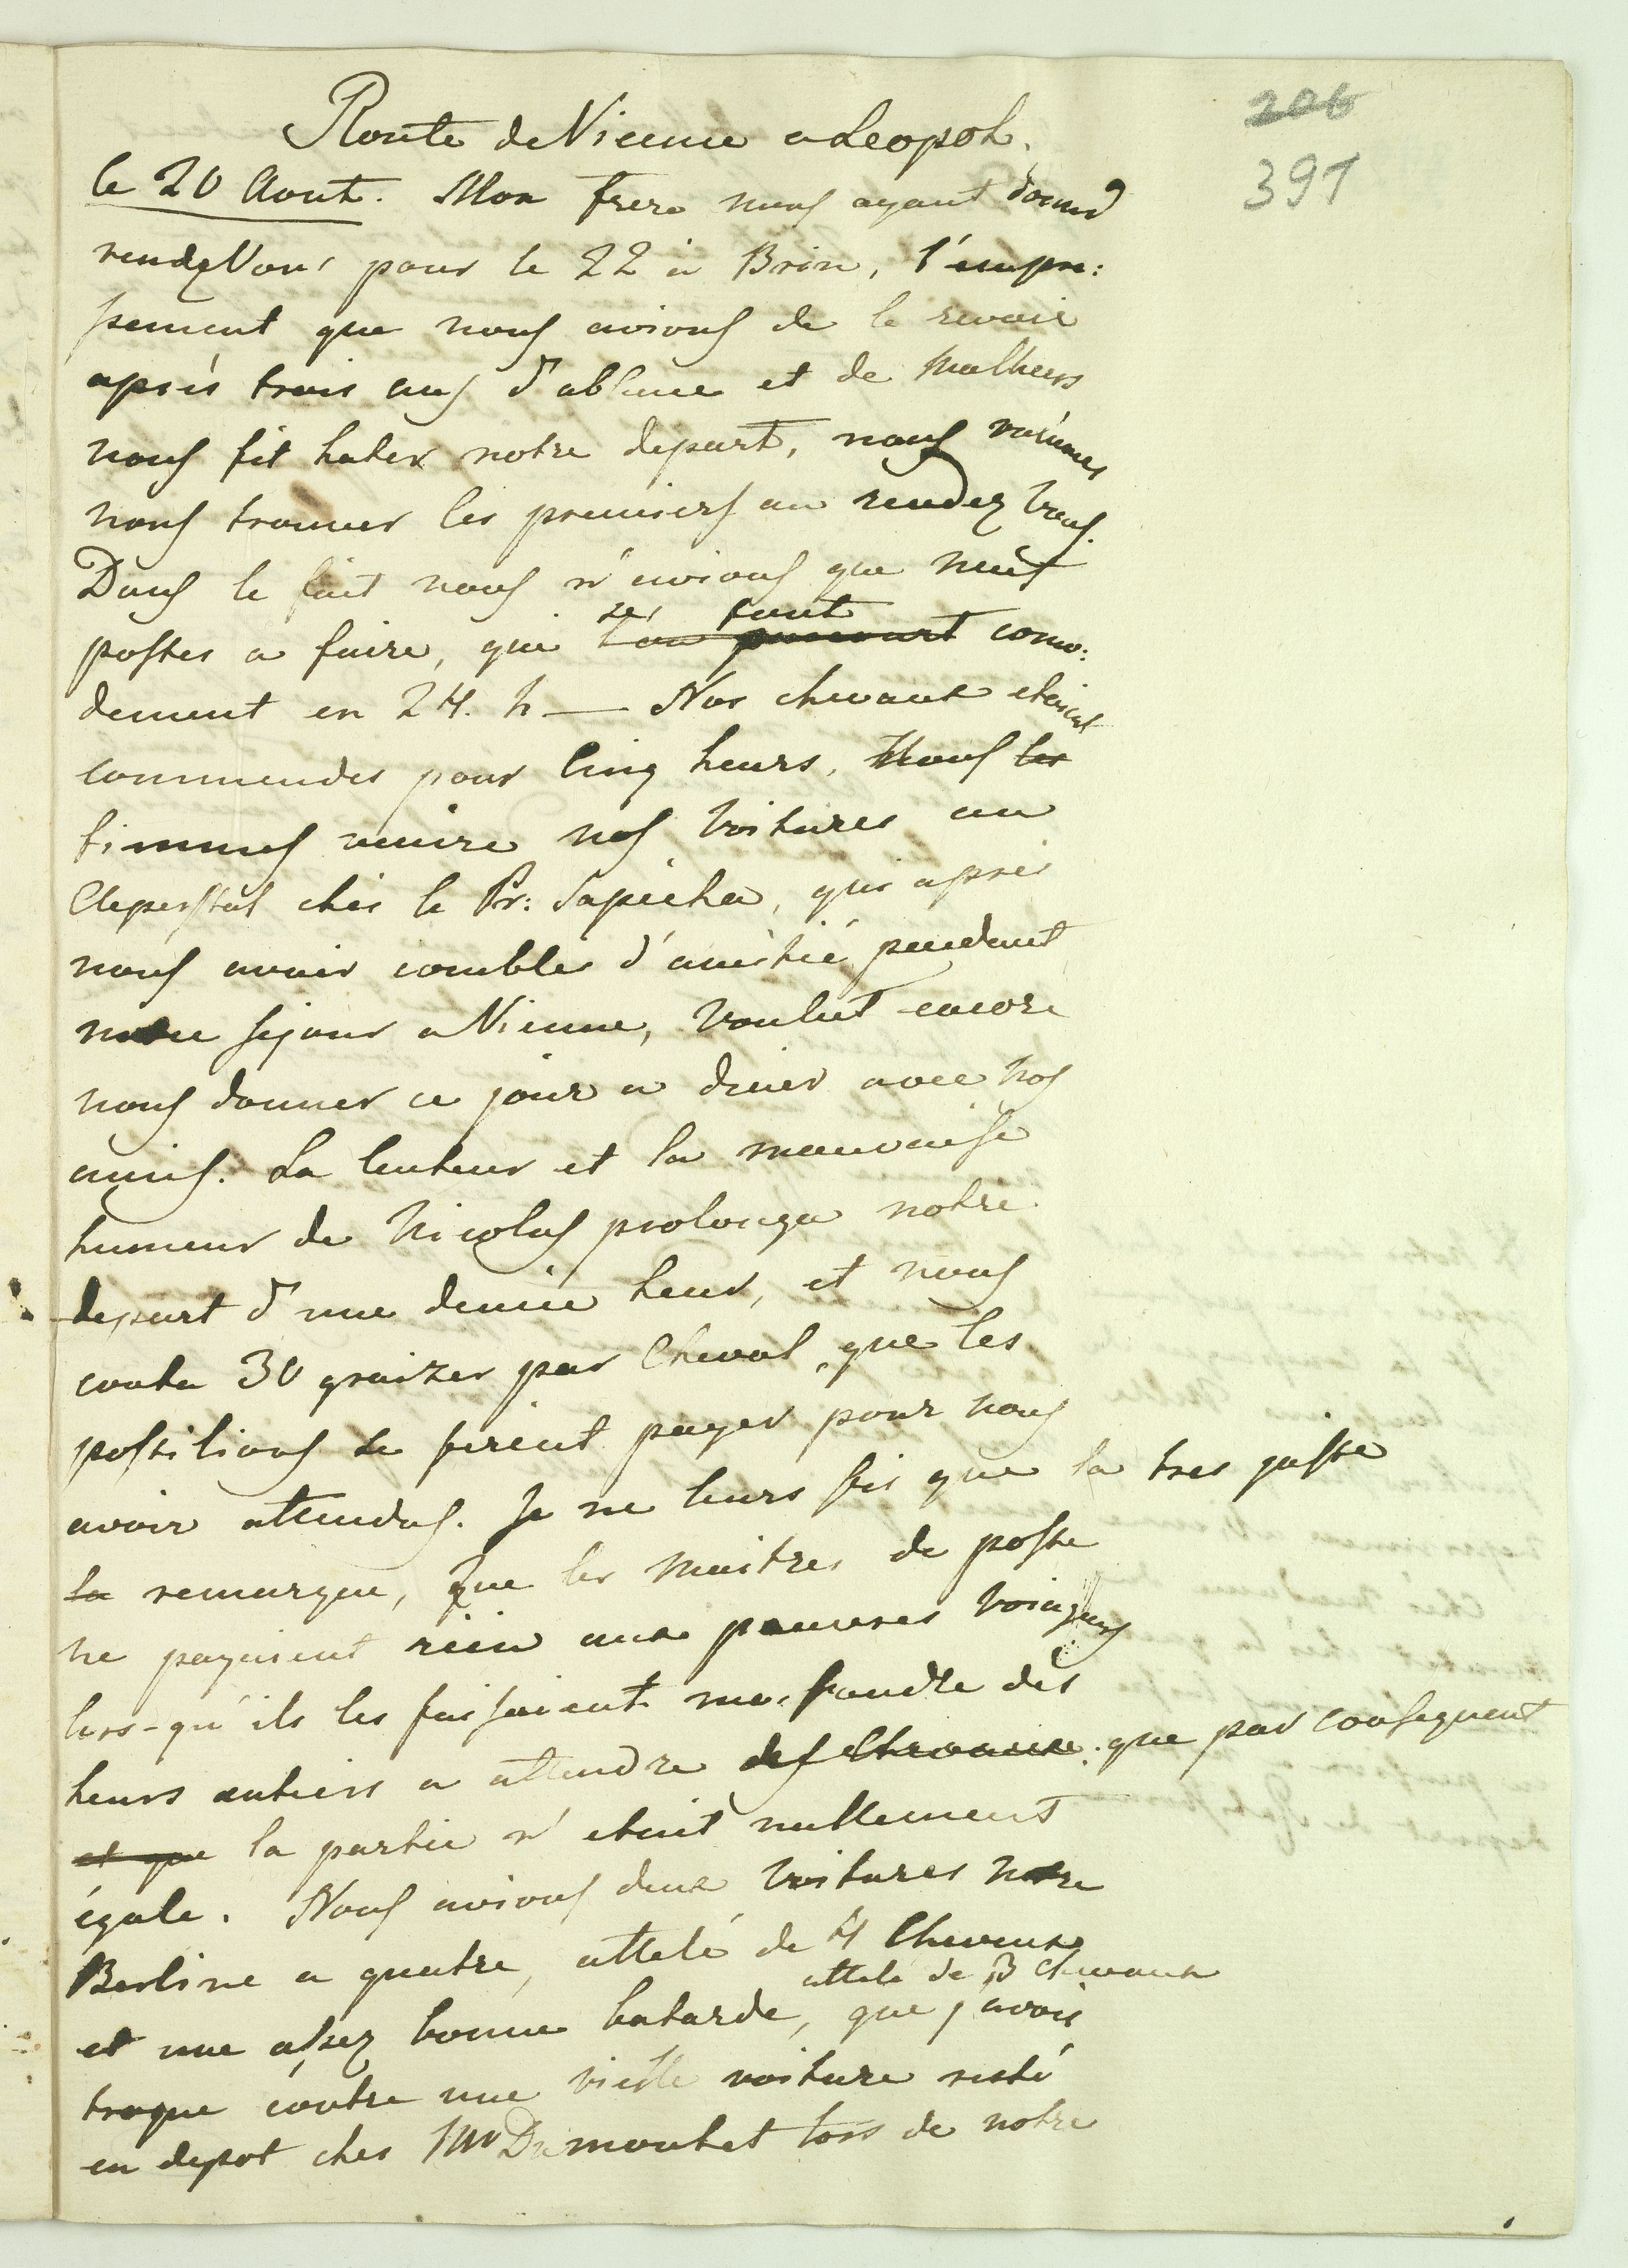 206
391
Route de Vienne a Leopol.
le 20 Aout. Mon frere nous ayant donné
rendezVous pour le 22 à Brin, l'empre:
ssement que nous avions de le revoir
aprés trois ans d'absence et de Malheurs
nous fit hater notre depart, nous voiumes
nous trouver les premiers au rendez Vous.
Dans le fait nous n'avions que neuf
postes a faire, qui l'on parcourt como:
se font
dement en 24. h — Nos chevaux etaient
commendes pour Cinq heurs, Nous les
fimmes venire nos Voitures au
chés le Pr: Sapieha, qui aprés
nous avoir combles d'amitié pendant
notre sejour a Vienne, Voulut encore
nous donner ce jour a diner avec nos
amis. La lenteur et la mauvaise
humeur de Nicolas prolonga notre
depart d'une demie heur, et nous
couta 30 graizer par Cheval, que les
postilions se firent payer pour nous
avoir attendus. Je ne leurs fis que la tres juste
la remarque, Que les Maitres de poste
ne payaient rien aux pauvres Voiageurs
lors-qu'ils les faisaient morfondre des
heurs entiers a attendre des Chevaux. que par consequent
et que la partie n'etait nullement
égale. Nous avions deux Voitures notre
Berline a quatre, attelé de 4 Chevaux
attelé de 3 Chevaux
et une assez bonne batarde, que j'avois
troqué contre une vieille voiture resté
en depot ches Mr Dumoutet lors de notre